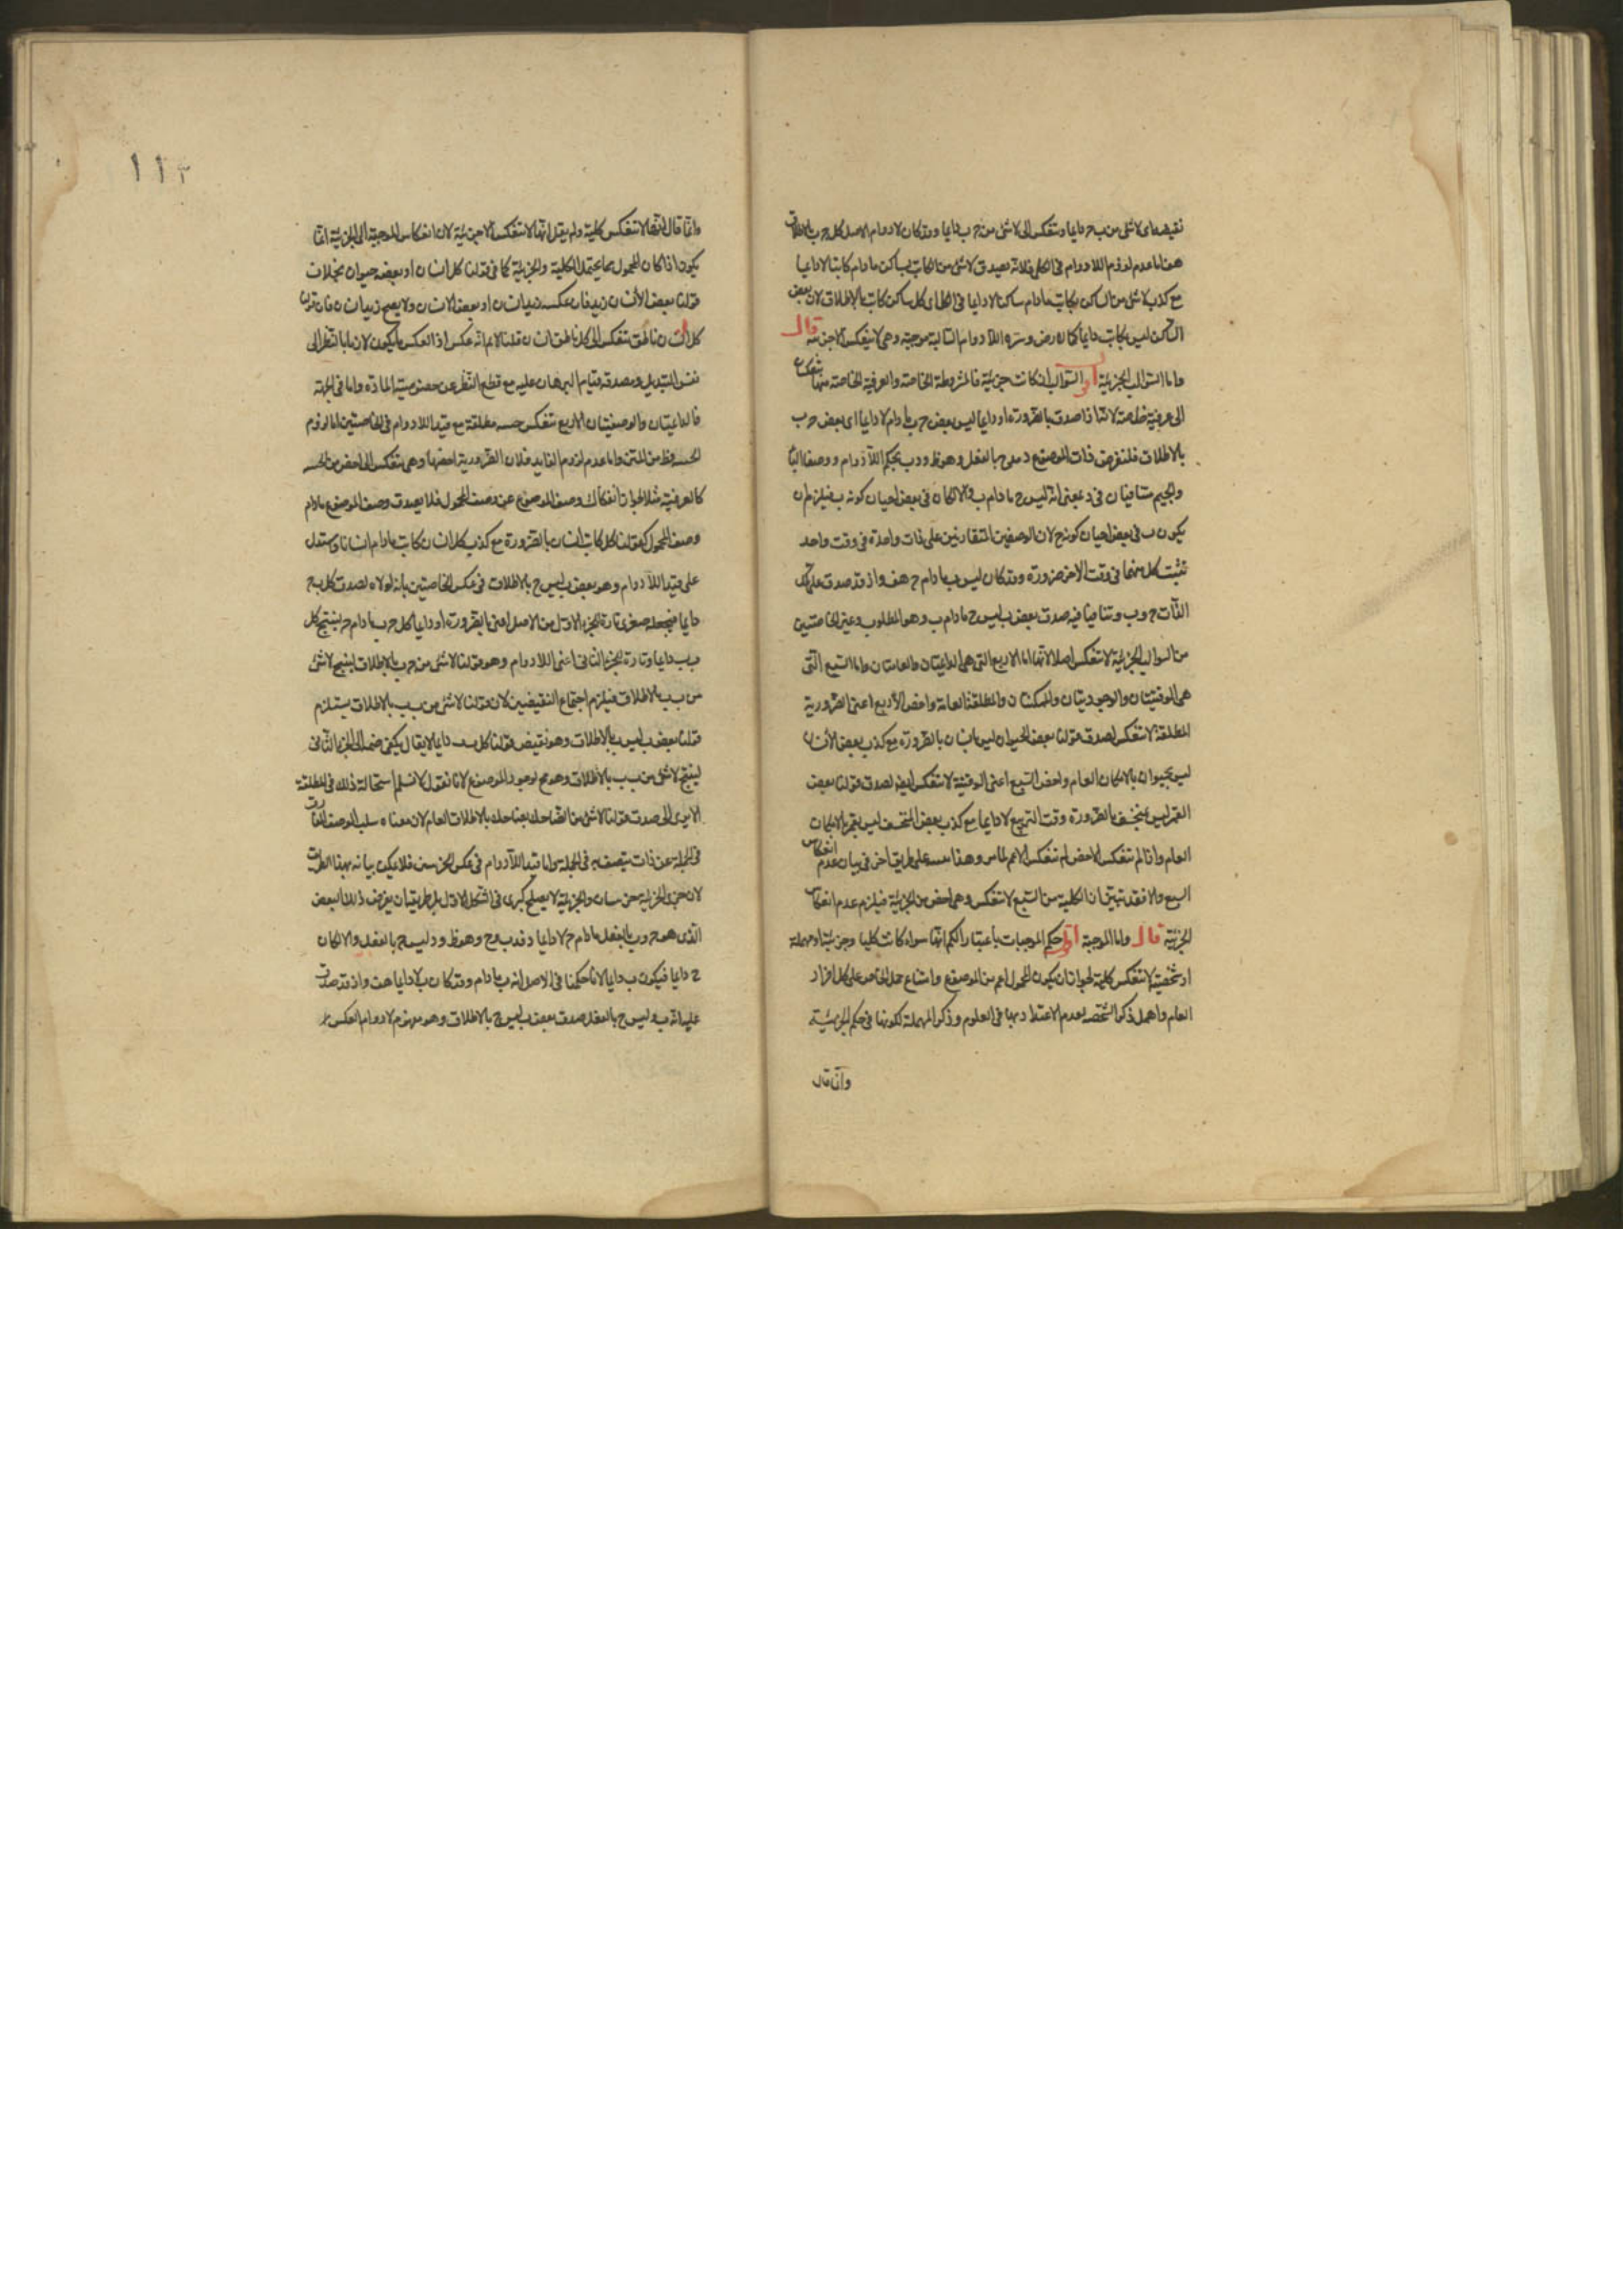 نقيضهما اى لا شئ من ب ج دايما وتنعكس الى لا شئ من ج ب دايما وقد كان لا دوام الاصل كل ج ب بالاطلاق
هف اما عدم لزوم اللادوام فى الكل فلانه يصدق لا شئ من الكاتب بساكن ما دام كاتبا لا دايما
مع كذب لا شئ من الساكن بكاتب ما دام ساكنا لا دايما فى الكل اى كل ساكن كاتب بالاطلاق لان بعض
الساكن ليس بكاتب دايما كالارض وسره ان اللادوام السالبة موجبة وهى لا ينعكس الا جزئية قال
واما السوالب الجزئية اقول السوالب ان كانت جزئية فالمشروطة الخاصة والعرفية الخاصة منها تنعكسان
الى عرفية خاصة لانه اذا صدق بالضرورة او دايما ليس بعض ج ب ما دام لا دايما اى بعض ج ب
بالاطلاق فلنفرض ذات الموضوع د فدج بالفعل وهو ظ ودب بحكم اللادوام ووصفا البا
والجيم متنافيان فى د بمعنى انه ليس ج ما دام ب والا لكان فى بعض احيان كونه ب فيلزم ان
يكون ب فى بعض احيان كونه ج لان الوصفين المتقارنين على ذات واحدة فى وقت واحد
تثبت كل منهما فى وقت الاخر ضرورة وقد كان ليس ب ما دام ج هف واذ قد صدق على تلك
الذات ج وب وتنافيا فيه صدق بعض ب ليس ج ما دام ب وهو المطلوب وغير الخاصتين
من السوالب الجزئية لا تنعكس اصلا لانها اما الاربع التى هى الدايمتان والعامتان واما السبع التى
هى الوقتيتان والوجوديتان والممكنتان والمطلقة العامة واخص الأربع اعنى الضرورية
المطلقة لا تنعكس لصدق قولنا بعض الحيوان ليس بانسان بالضرورة مع كذب بعض الأنسان
ليس بحيوان بالامكان العام واخص السبع اعنى الوقتية لا تنعكس ايضا لصدق قولنا بعض
القمر ليس بمنخسف بالضرورة وقت التربيع لا دايما مع كذب بعض المنخسف ليس بقمر بالامكان
العام واذا لم تنعكس الاخص لم تنعكس الاعم لما مر وهذا على طريق اخر فى بيان عدم انعكاس
السبع والا فقد تبين ان الكلية من السبع لا تنعكس وهى اخص من الجزئية فيلزم عدم انعكاس
الجزئية قال واما الموجبة اقول حكم الموجبات باعتبار الكم انها سواء كانت كليا وجزئيتا ومهملة
او شخصية لا تنعكس كلية لجواز ان يكون المحمول اعم من الموضوع وامتناع حمل الخاص على كل افراد
العام واهمل ذكر الشخصية لعدم الاعتداد بها فى العلوم وذكر المهملة لكونها فى حكم الجزئية
وانما قال
١١٢
وانما قال انها لا تنعكس كلية ولم يقل انها لا تنعكس الا جزئية لان انعكاس الموجبة الى الجزئية انما
يكون اذا كان المحمول مما يحتمل الكلية والجزئية كما فى قولنا كل انسان او بعضه حيوان بخلاف
قولنا بعض الأنسان زيد فان عكسه زيد انسان او بعض الانسان ولا يصح زيد انسان فان قولنا
كل انسان ناطق تنعكس الى كل ناطق انسان قلنا لا نم انه عكس اذ العكس ما يكون لازما بالنظر الى
نفس التبديل ومصدقه قيام البرهان عليه مع قطع النظر عن خصوصية المادة واما فى الجهة
فالدايمتان والوصفيتان الاربع تنعكس حينية مطلقة مع قيد اللادوام فى الخاصتين اما لزوم
الحينية فظ من المتن واما عدم لزوم الزايد فلان الضرورية اخصها وهى تنعكس الى اخص من الحينية
كالعرفية مثلا لجواز انفكاك وصف الموضوع عن وصف المحمول فلا يصدق وصف الموضوع ما دام
وصف المحمول كقولنا كل كاتب انسان بالضرورة مع كذب كل انسان كاتب ما دام انسانا ويستدل
على قيد اللادوام وهو بعض ب ليس ج بالاطلاق فى عكس الخاصتين بانه لولاه لصدق كل ب ج
دايما فنجعله صغرى تارة للجزء الاول من الاصل اعنى بالضرورة او دايما كل ج ب ما دام ج ينتج كل
ب ب دايما وتارة للجزء الثانى اعنى اللادوام وهو قولنا لا شئ من ج ب بالاطلاق لينتج لا شئ
من ب ب بالاطلاق فيلزم اجتماع النقيضين لان قولنا لا شئ من ب ب بالاطلاق يستلزم
قولنا بعض ب ليس ب بالاطلاق وهو نقيض قولنا كل ب ب دايما لا يقال يكفى ضمه الى الجزء الثانى
لينتج لا شئ من ب ب بالاطلاق وهو مح لوجود الموضوع لانا نقول لا نسلم استحالة ذلك فى المطلقة
الا يرى الى صدق قولنا لا شئ من الضاحك بضاحك بالاطلاق العام لان معناه سلب الوصف
فى الجملة عن ذات يتصف به فى الجملة واما قيد اللادوام فى عكس الجزئيتين فلا يمكن بيانه بهذا الطريق
لان جزئى الجزئية جزئيتان والجزئية لا يصلح كبرى فى الشكل الاول بل طريقه ان يفرض ذلك البعض
الذى هو ج وب بالفعل ما دام ج لا دايما د فدب وج وهو ظ ود ليس ج بالفعل والا لكان
ج دايما فيكون ب دايما لانا حكمنا فى الاصل انه ب ما دام وقد كان ب لا دايما هف واذ قد صدق
عليه انه ب وليس ج بالفعل صدق بعض ب ليس ج بالاطلاق وهو مفهوم لا دوام العكس